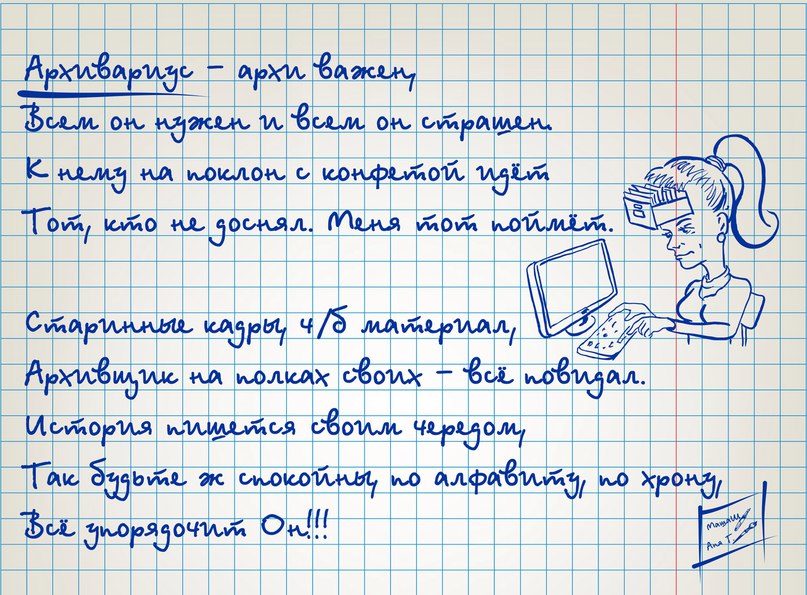 Архивариус – архи важен,
Всем он нужен и всем он страшен.
К нему на поклон с конфетой идёт
Тот, кто не доснял. Меня тот поймёт.
Старинные кадры, ч/б материал,
Архивщик на полках своих – всё повидал.
История пишется своим чередом,
Так будьте ж спокойны, по алфавиту, по хрону,
Всё упорядочит Он!!!
Аня Т.